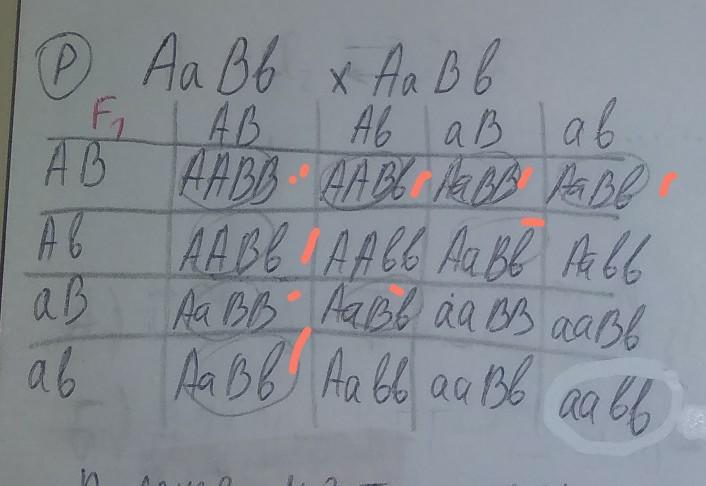 P AaBb x AaBb
F1 AB Ab aB ab
AB AABB AABb AaBB AaBb
Ab AABb AAbb AaBb Aabb
aB AaBB AaBb aaBB aaBb
ab AaBb Aabb aaBb aabb